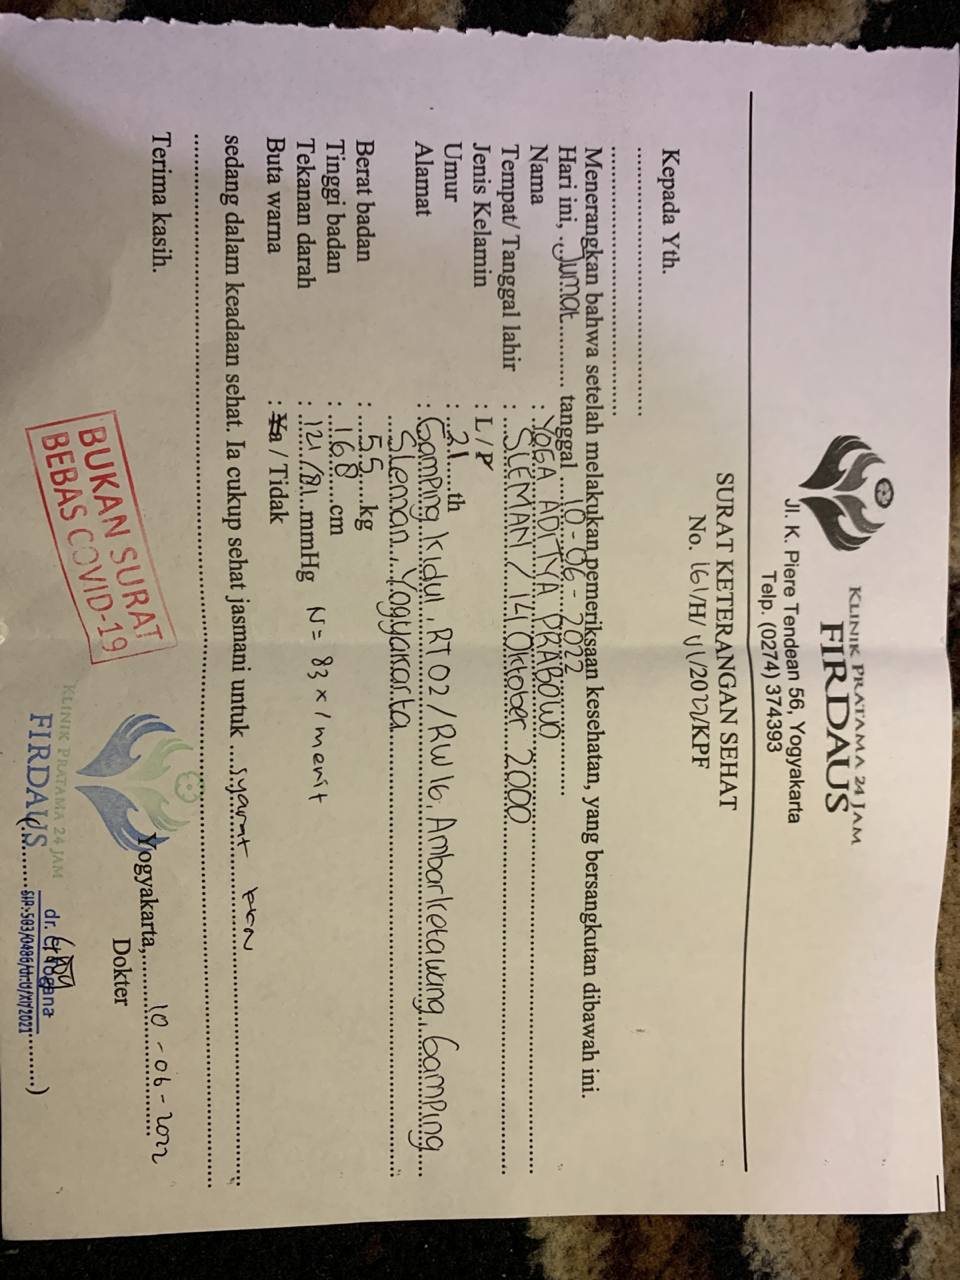 KLINIK PRATAMA 24 JAM
FIRDAUS
Jl. K. Piere Tendean 56, Yogyakarta
Telp. (0274) 374393
SURAT KETERANGAN SEHAT
No. 161/H/VI/2022/KPF
Kepada Yth.
Menerangkan bahwa setelah melakukan pemeriksaan kesehatan, yang bersangkutan dibawah ini.
Hari ini, Jumat tanggal 10-06-2022
Nama : YOGA ADITYA PRABOWO
Tempat/ Tanggal lahir : SLEMAN / 14 Oktober 2000
Jenis Kelamin : L / P
Umur : 21 th
Alamat : Gamping Kidul, RT 02 / RW 16, Ambarketawang, Gamping
Sleman, Yogyakarta
Berat badan : 55 kg
Tinggi badan : 168 cm
Tekanan darah : 121/81 mmHg N = 83 x / menit
Buta warna : Ya / Tidak
sedang dalam keadaan sehat. Ia cukup sehat jasmani untuk syarat KKN
Terima kasih.
Yogyakarta, 10-06-2022
Dokter
BUKAN SURAT
BEBAS COVID-19
KLINIK PRATAMA 24 JAM
FIRDAUS
dr.